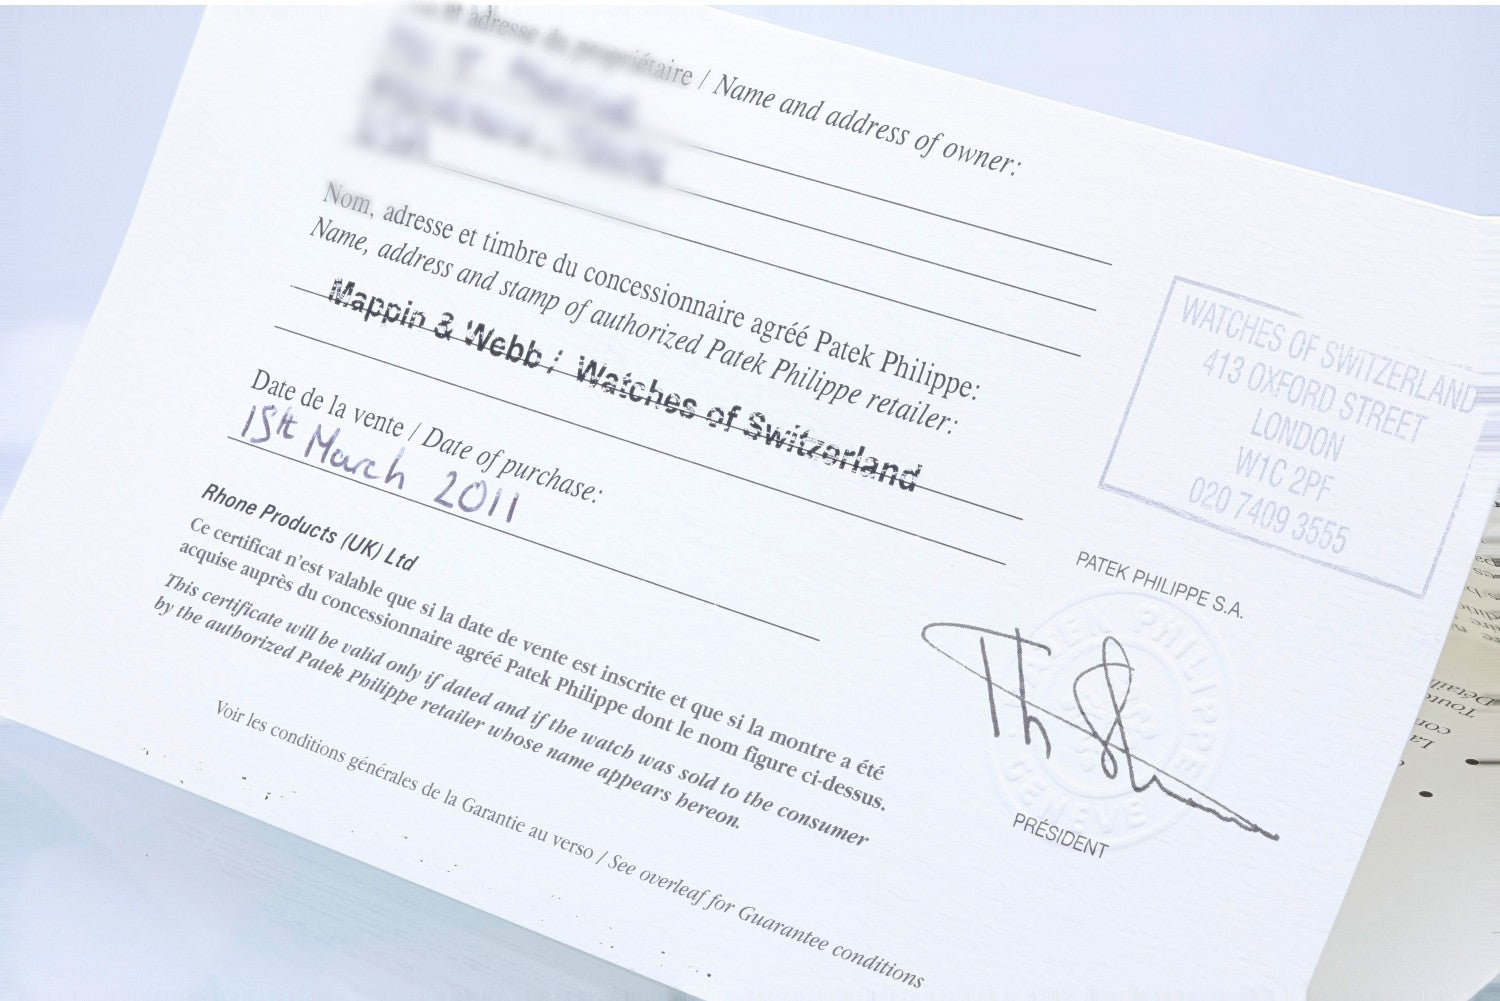 et adresse du propriétaire / Name and address of owner:
Nom, adresse et timbre du concessionnaire agréé Patek Philippe:
Name, address and stamp of authorized Patek Philippe retailer:
Mappin & Webb / Watches of Switzerland
WATCHES OF SWITZERLAND
413 OXFORD STREET
LONDON
W1C 2PF
020 7409 3555
Date de la vente / Date of purchase:
15th March 2011
Rhone Products (UK) Ltd
Ce certificat n'est valable que si la date de vente est inscrite et que si la montre a été
acquise auprès du concessionnaire agréé Patek Philippe dont le nom figure ci-dessus.
This certificate will be valid only if dated and if the watch was sold to the consumer
by the authorized Patek Philippe retailer whose name appears hereon.
Voir les conditions générales de la Garantie au verso / See overleaf for Guarantee conditions
PATEK PHILIPPE S.A.
PATEK PHILIPPE
GENEVE
PRÉSIDENT